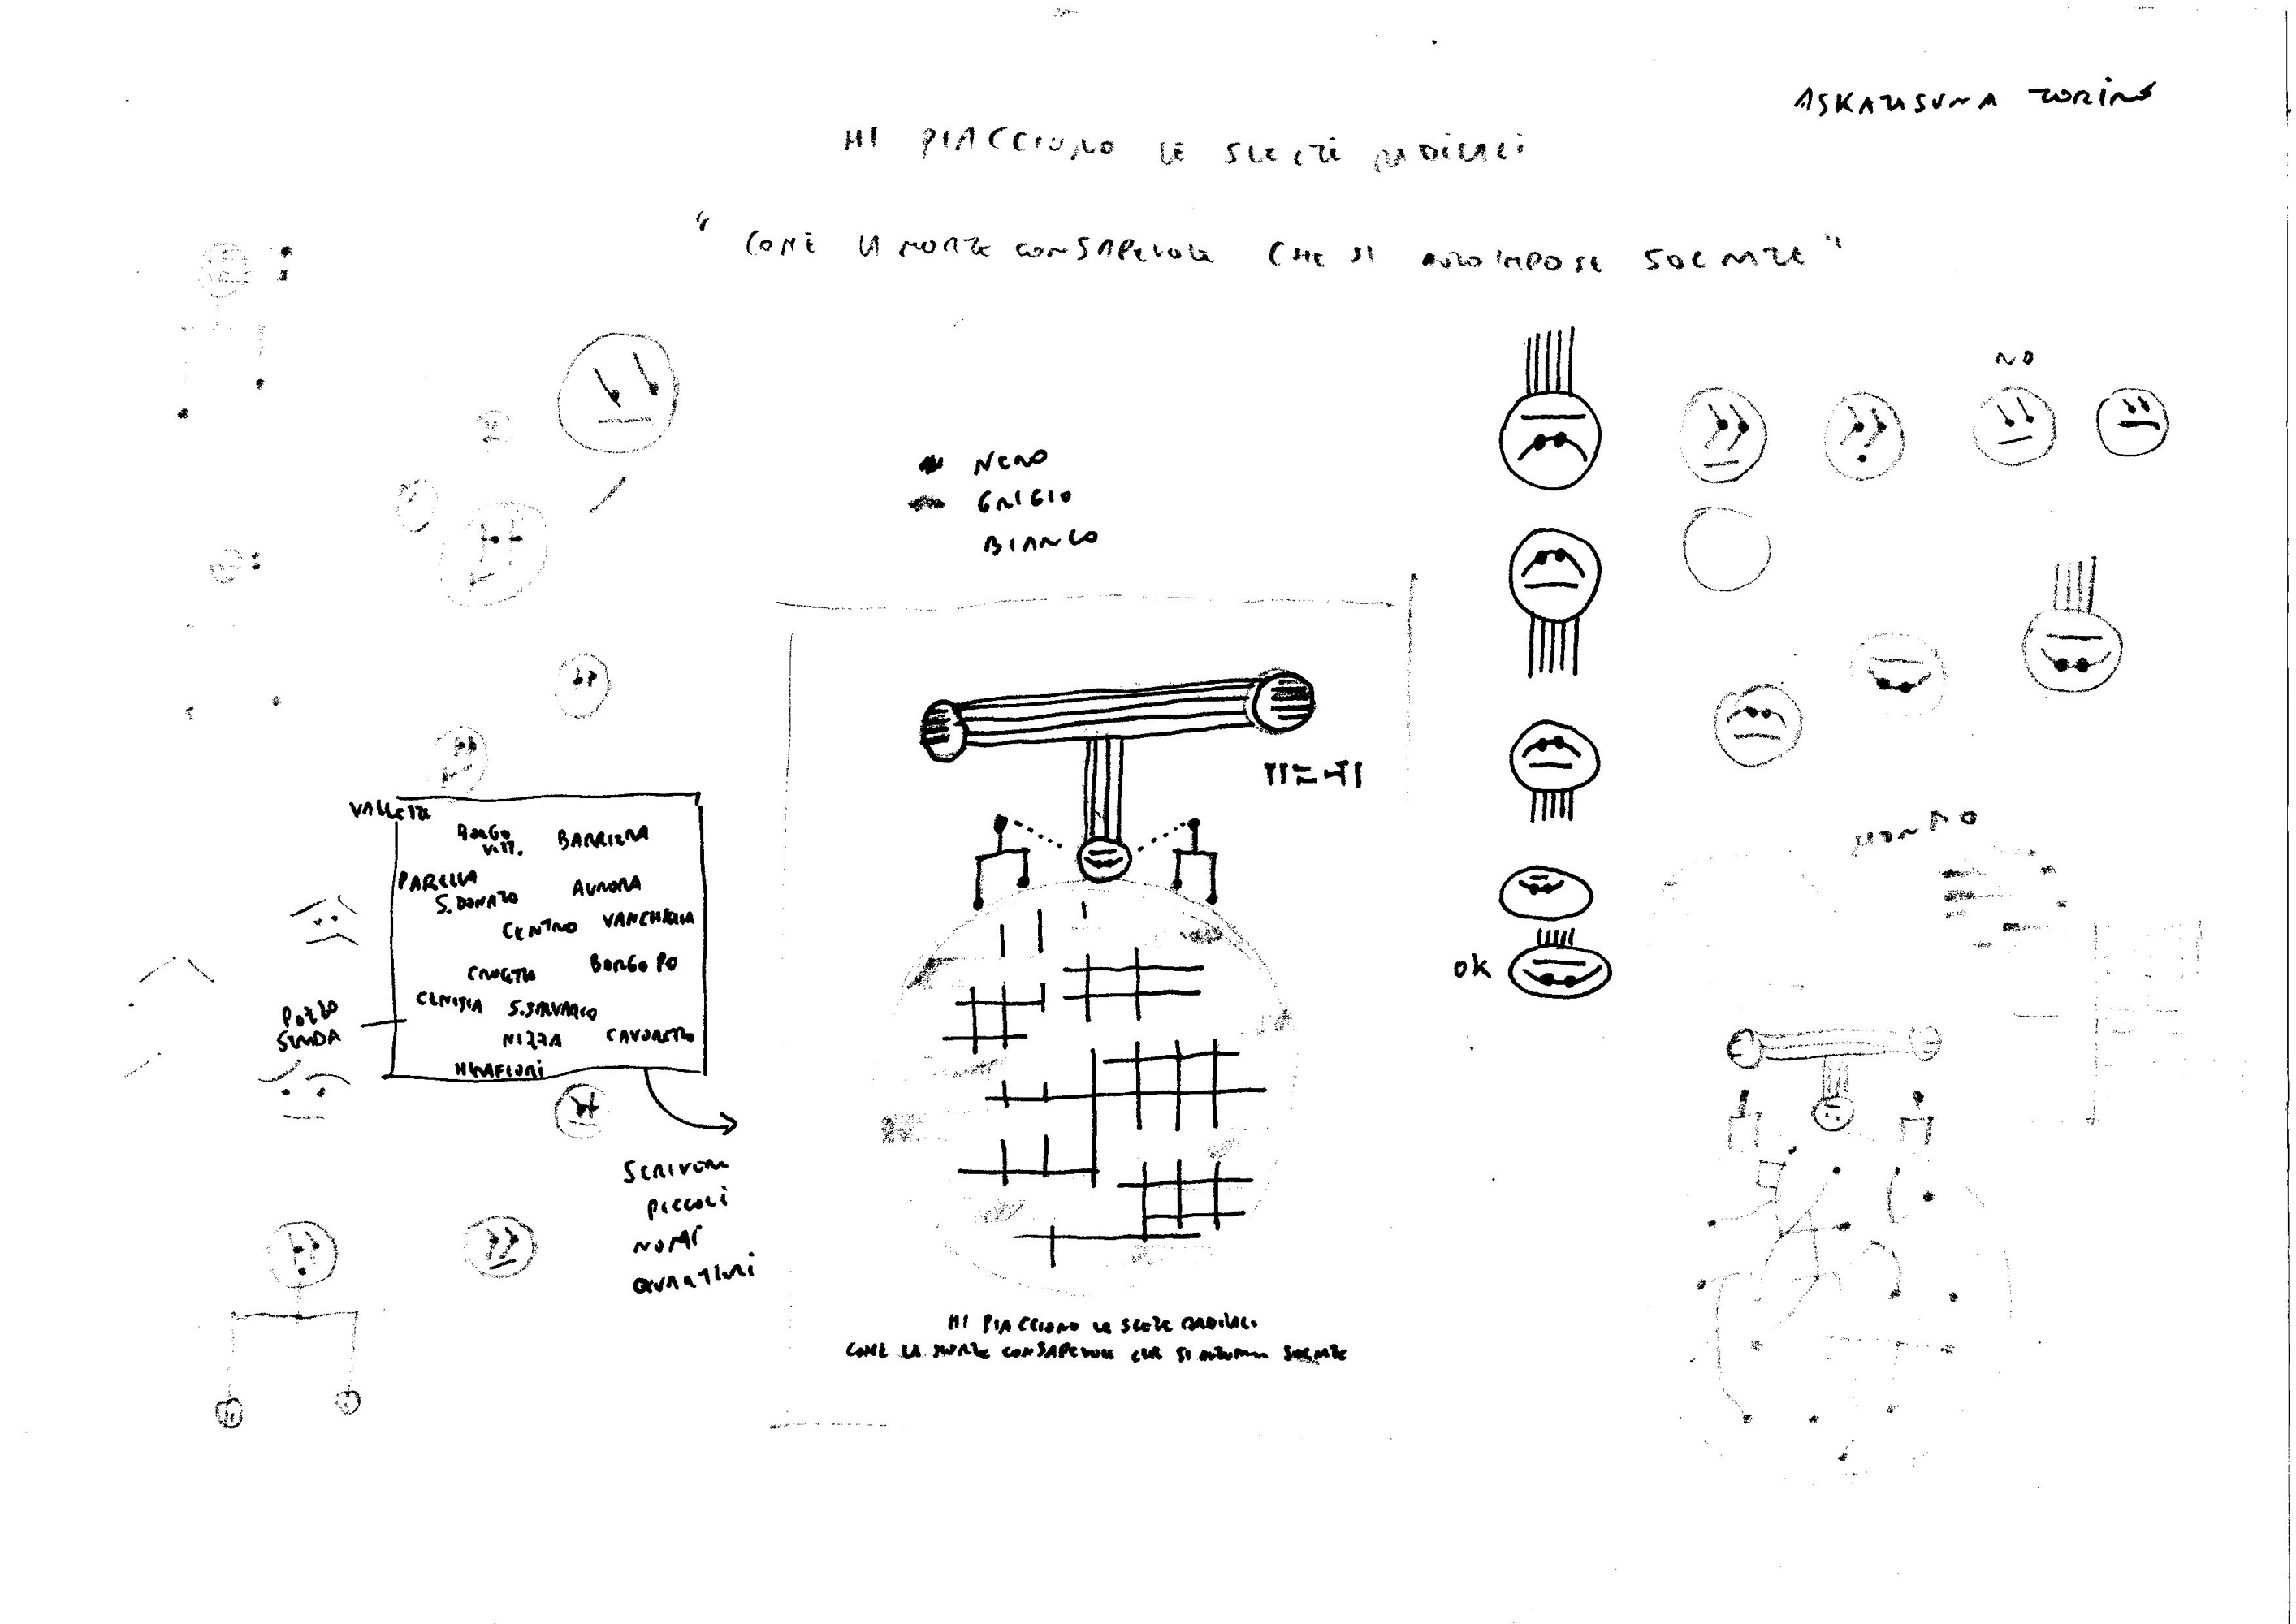 ASKATASUNA TORINO
MI PIACCIONO LE SCELTE RADICALI
"COME LA MORTE CONSAPEVOLE CHE SI AUTOIMPOSE SOCRATE"
NO
NERO
GRIGIO
BIANCO
VALLETTE
BORGO VITT.
BARRIERA
PARELLA
S. DONATO
AURORA
CENTRO
VANCHIGLIA
CROCETTA
BORGO PO
CENISIA
S. SALVARIO
POZZO
STRADA
NIZZA
CAVORETTO
MIRAFIORI
OK
MONDO
SCRIVERE
PICCOLI
NOMI
QUARTIERI
MI PIACCIONO LE SCELTE RADICALI
COME LA MORTE CONSAPEVOLE CHE SI SOCRATE